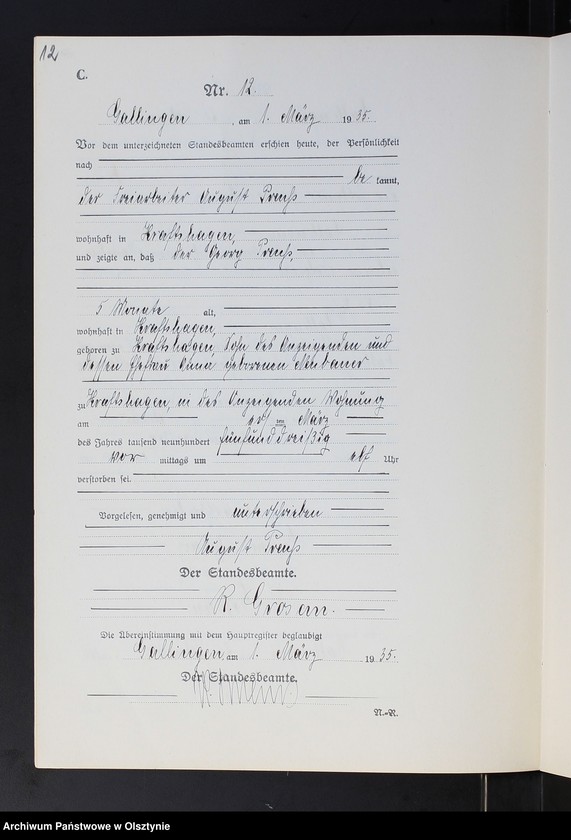 12
C.
Nr. 12.
Gallingen, am 1. März 1935.
Vor dem unterzeichneten Standesbeamten erschien heute, der Persönlichkeit
nach
be kannt,
der Freiarbeiter August Preuß
wohnhaft in Kraftshagen,
und zeigte an, daß der Georg Preuß,
5 Monate alt,
wohnhaft in Kraftshagen,
geboren zu Kraftshagen, Sohn des Anzeigenden und
dessen Ehefrau Anna geborenen
zu Kraftshagen, in des Anzeigenden Wohnung
am im März
des Jahres tausend neunhundert fünfunddreißig
vor mittags um elf Uhr
verstorben sei.
Vorgelesen, genehmigt und unterschrieben
August Preuß
Der Standesbeamte.
R.
Die Übereinstimmung mit dem Hauptregister beglaubigt
Gallingen, am 1. März 1935.
Der Standesbeamte.
N.-R.
Archiwum Państwowe w Olsztynie